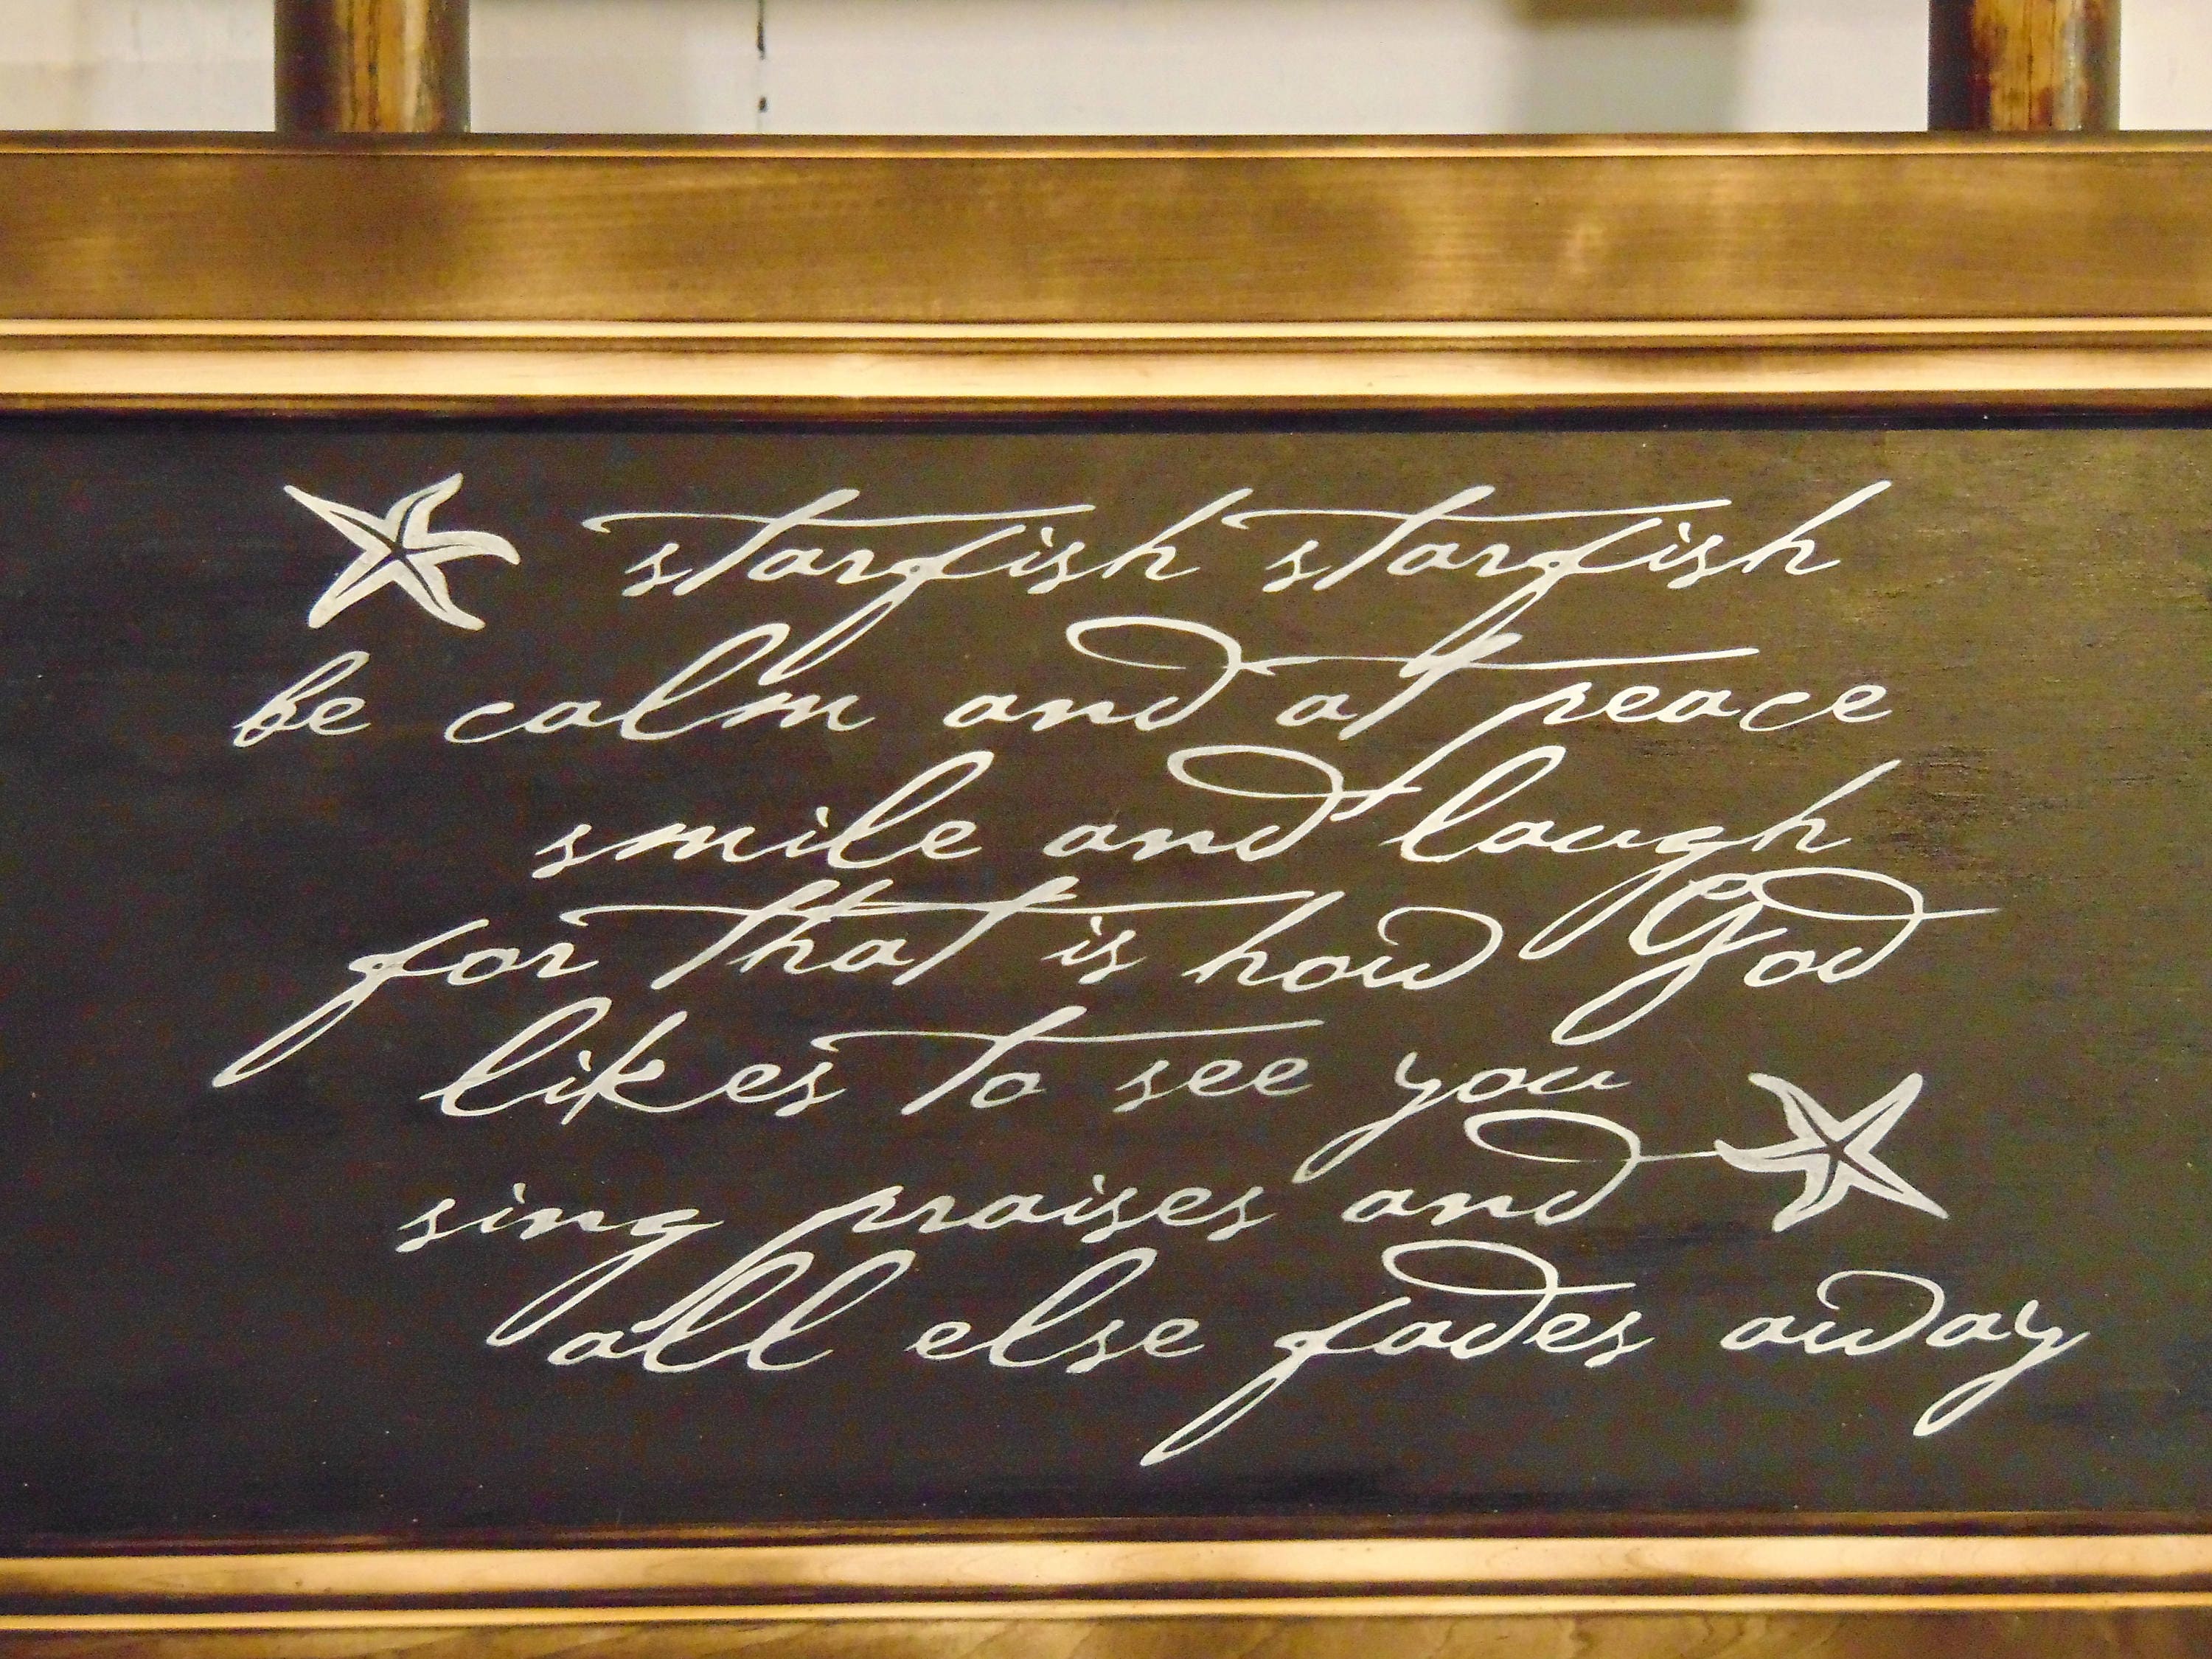 starfish starfish
be calm and at peace
smile and laugh
for that is how God
likes to see you
sing praises and
all else fades away